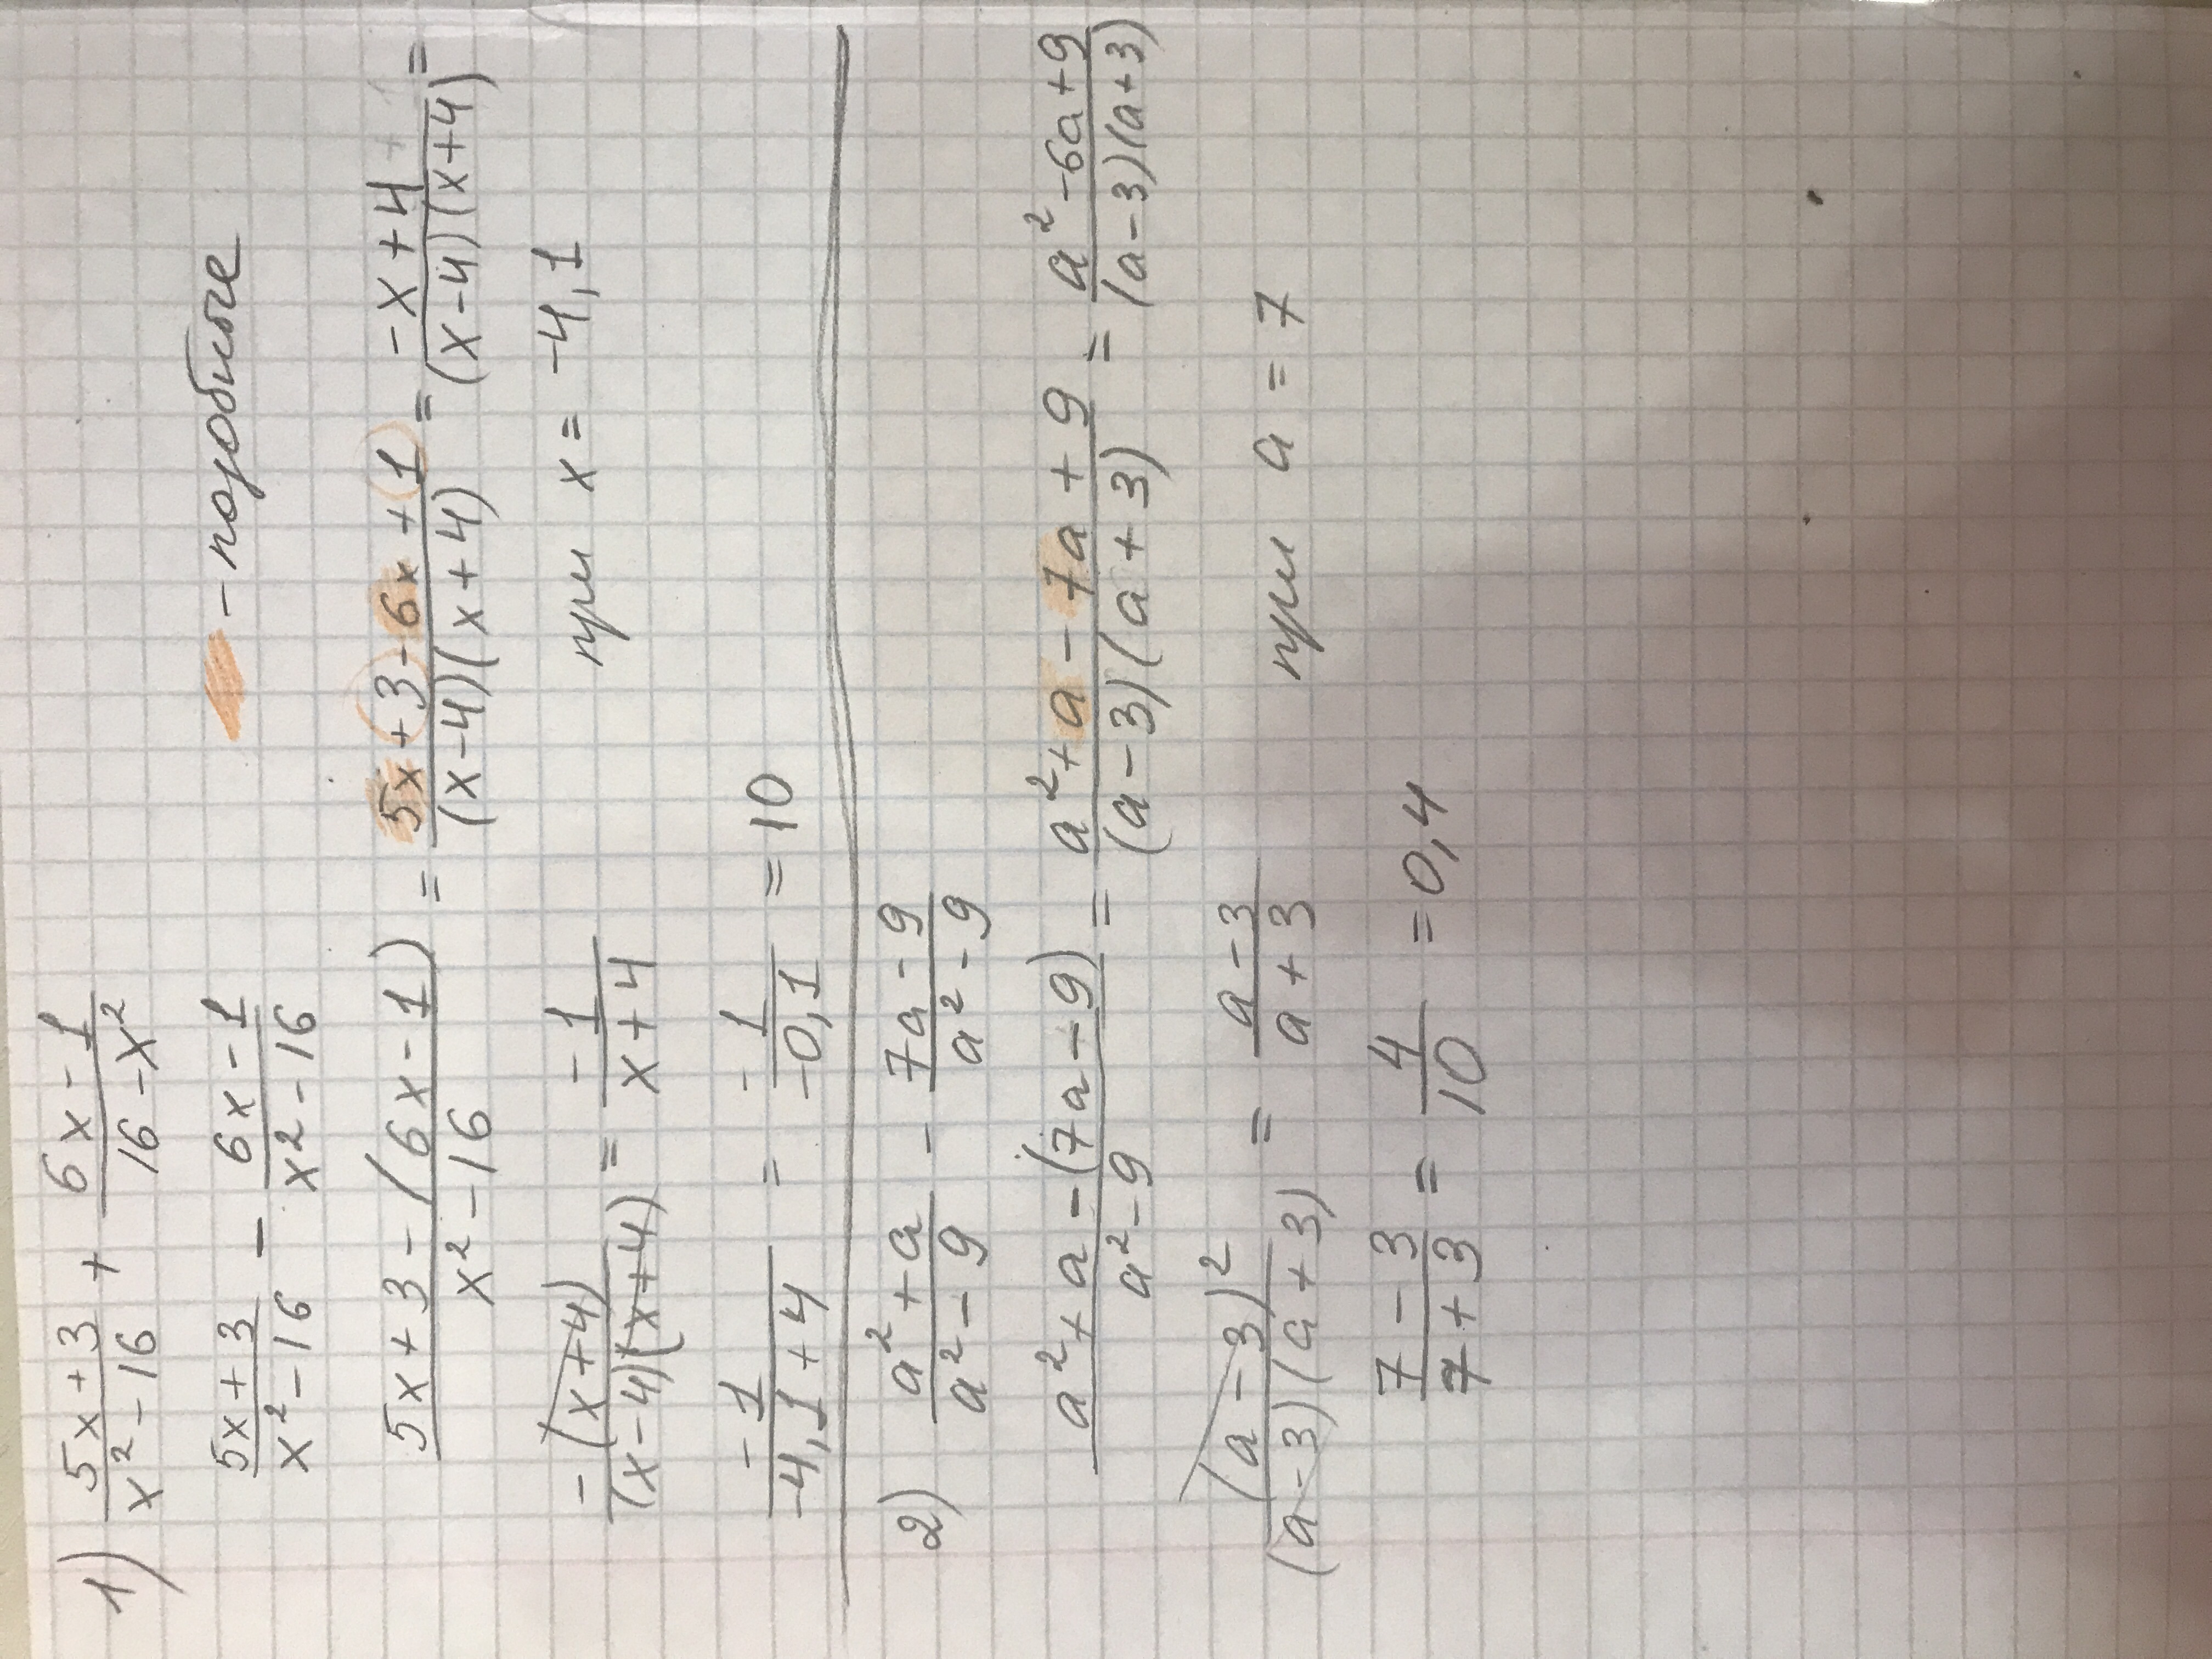 1) (5x+3)/(x²-16) + (6x-1)/(16-x²)
(5x+3)/(x²-16) - (6x-1)/(x²-16) - подобные
(5x+3-(6x-1))/(x²-16) = (5x+3-6x+1)/((x-4)(x+4)) = (-x+4)/((x-4)(x+4)) =
(-(x+4))/((x-4)(x+4)) = (-1)/(x+4) при x = -4,1
(-1)/(-4,1+4) = (-1)/(-0,1) = 10
2) (a²+a)/(a²-9) - (7a-9)/(a²-9)
(a²+a-(7a-9))/(a²-9) = (a²+a-7a+9)/((a-3)(a+3)) = (a²-6a+9)/((a-3)(a+3))
(a-3)²/((a-3)(a+3)) = (a-3)/(a+3) при a = 7
(7-3)/(7+3) = 4/10 = 0,4